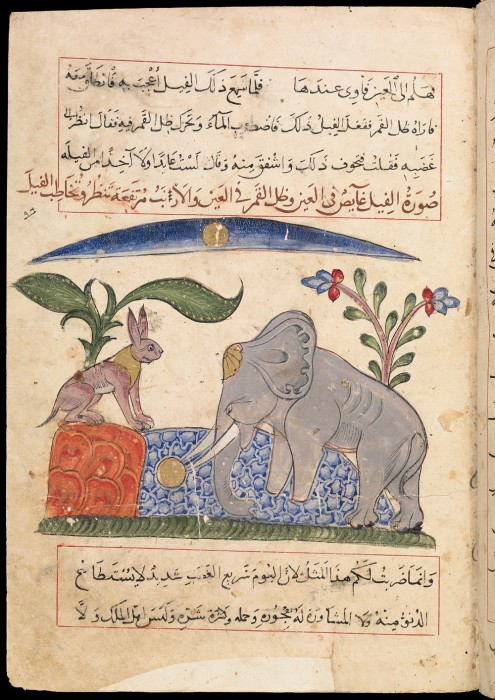 هلم الى العين فاوى عندها فلما سمع ذلك الفيل اعجب به فانطلق معه
فاراه ظل القمر ففعل الفيل ذلك فاضطرب المآء وتحرك ظل القمر فيه فقال انظر الى
غضبه فقلت مخوف ذلك واشفق منه وقال لست عايدا ولا آخذا من الفيله
صورة الفيل غايص فى العين وظل القمر فى العين والارنب مرتفعة تنظر وتخاطب الفيل
وانما ضربت لكم هذا المثل لان البوم سريع الغضب شديد لا يستطاع
الدنو منه ولا المشاورة له لفجوره وحمله وكثرة شره وليس اهل الملك ولا